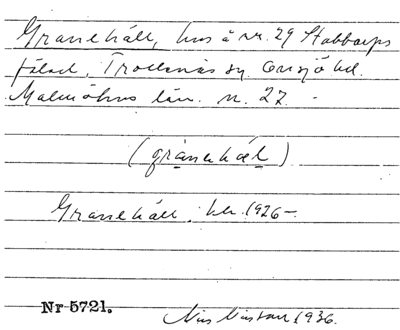 Granehäll, hus å nr. 29 Stabbarps
fälad, Trollenäs sn Onsjö hd.
Malmöhus län. n. 27.
(grànehäl)
Granehäll, bb. 1926-
Nr 5721.
Nils Nilsson 1936.